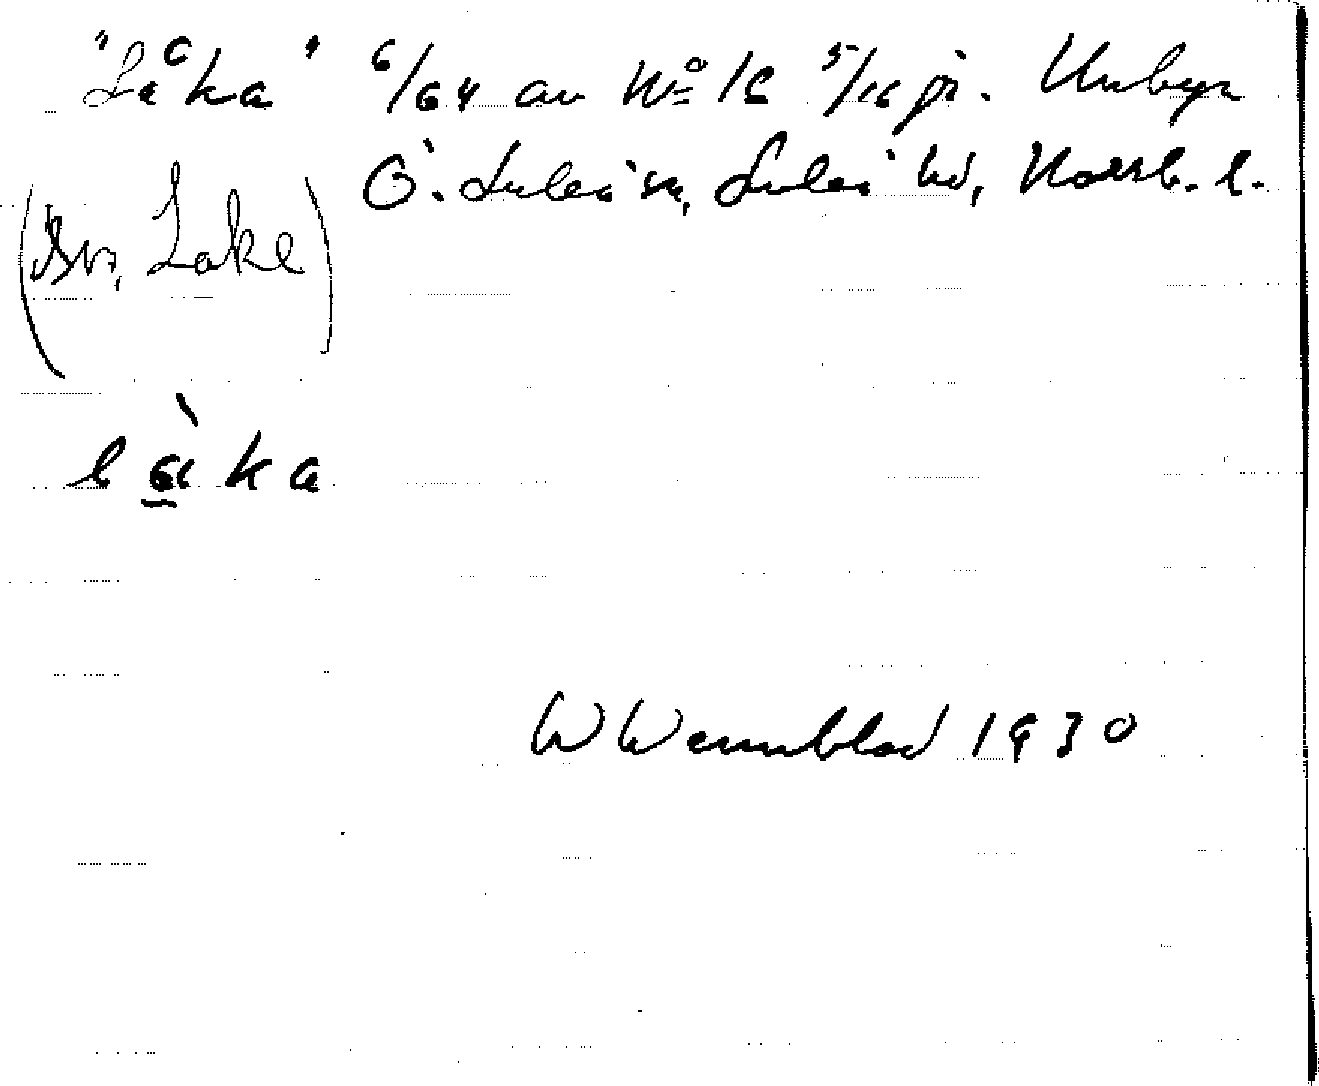 "Låka" 6/64 av No 16 5/16 fr. Unbyn
Ö. Luleå sn, Luleå hd, Norrb. l.
(Sv, Lake)
l àka
W Wennblad 1930